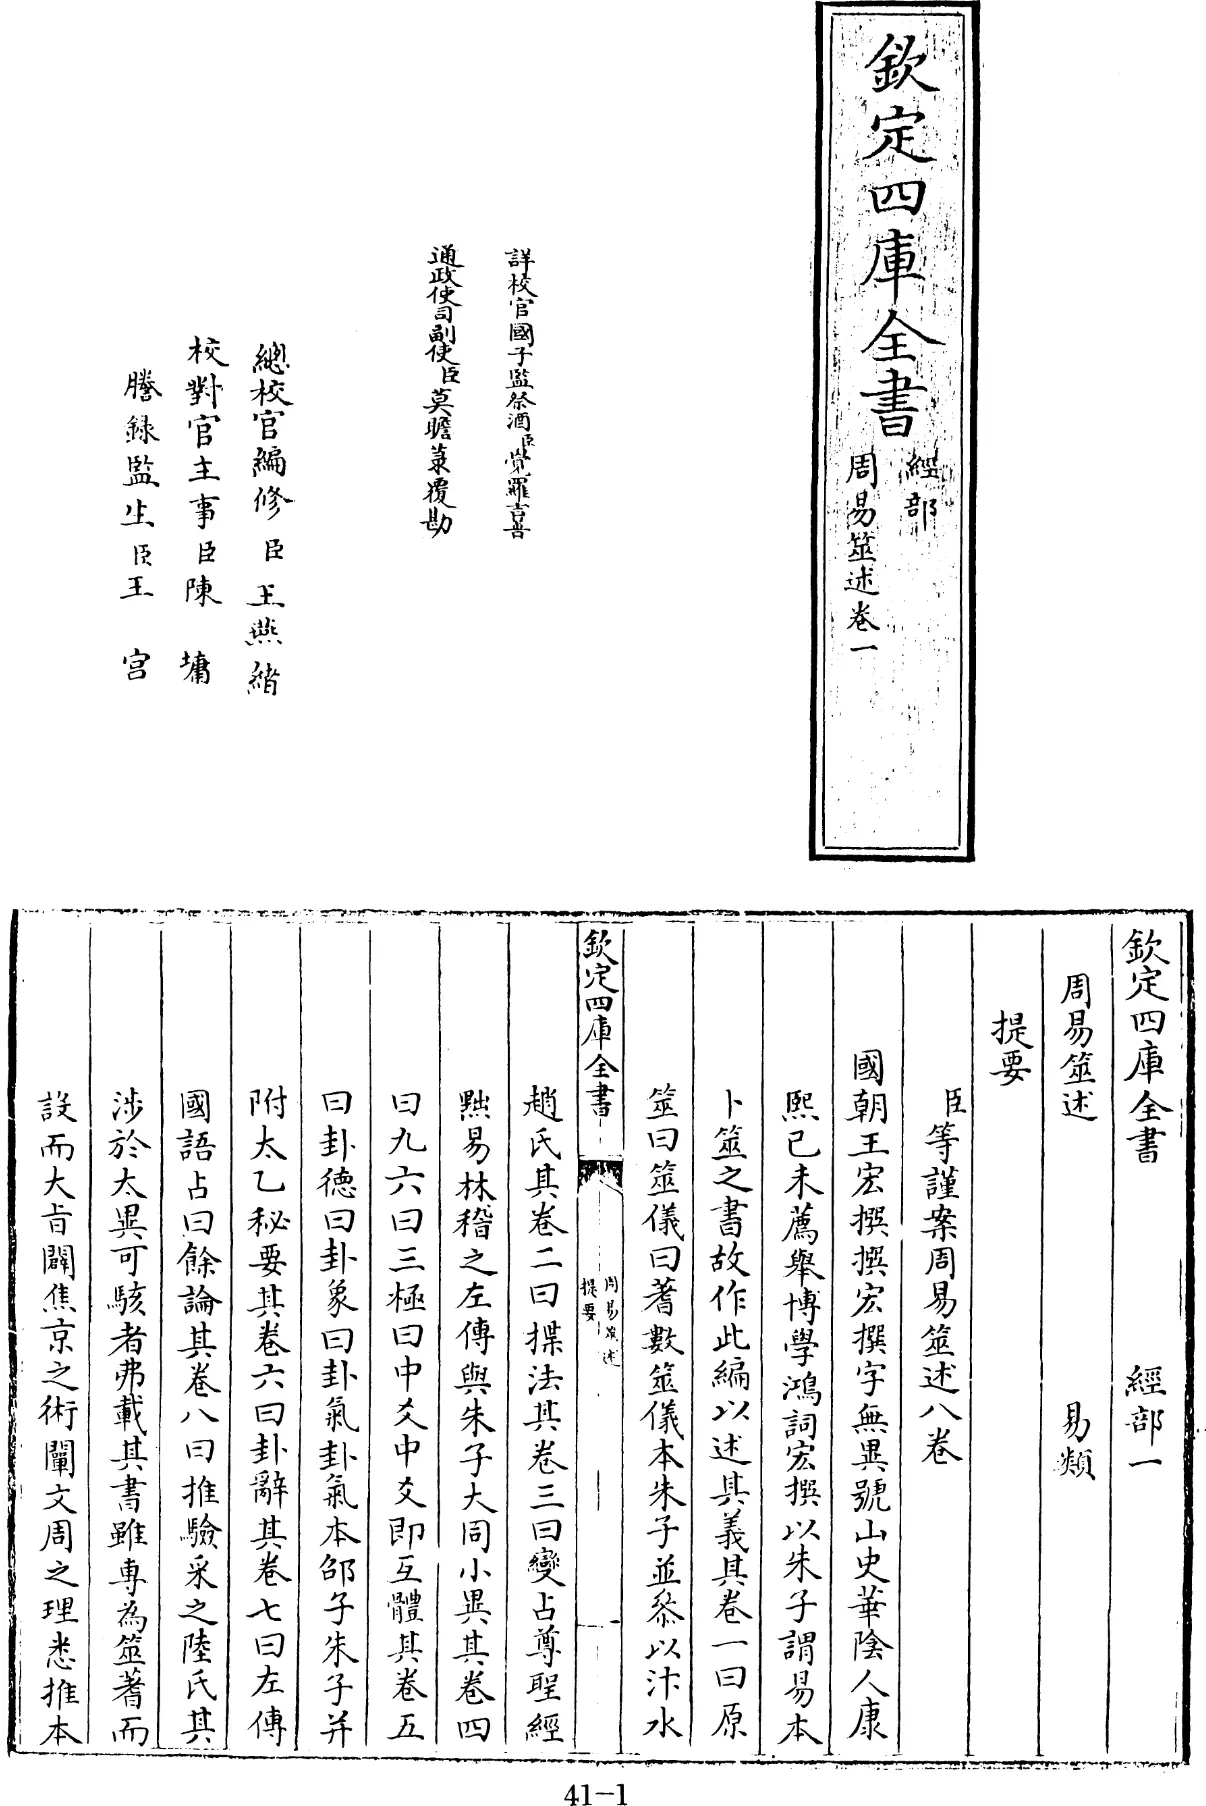 欽定四庫全書
經部
周易筮述卷一
詳校官國子監祭酒臣覺羅吉善
通政使司副使臣莫瞻菉覆勘
總校官編修臣王燕緒
校對官主事臣陳墉
謄錄監生臣王宮
欽定四庫全書 經部一
周易筮述 易類
提要
臣等謹案周易筮述八卷
國朝王宏撰撰宏撰字無異號山史華陰人康
熙己未薦舉博學鴻詞宏撰以朱子謂易本
卜筮之書故作此編以述其義其卷一曰原
筮曰筮儀曰蓍數筮儀本朱子並叅以汴水
欽定四庫全書
周易筮述
提要
一
趙氏其卷二曰揲法其卷三曰變占尊聖經
黜易林稽之左傳與朱子大同小異其卷四
曰九六曰三極曰中爻中爻即互體其卷五
曰卦德曰卦象曰卦氣卦氣本邵子朱子并
附太乙秘要其卷六曰卦辭其卷七曰左傳
國語占曰餘論其卷八曰推驗采之陸氏其
涉於太異可駭者弗載其書雖専為筮蓍而
設而大旨闢焦京之術闡文周之理悉推本
41-1